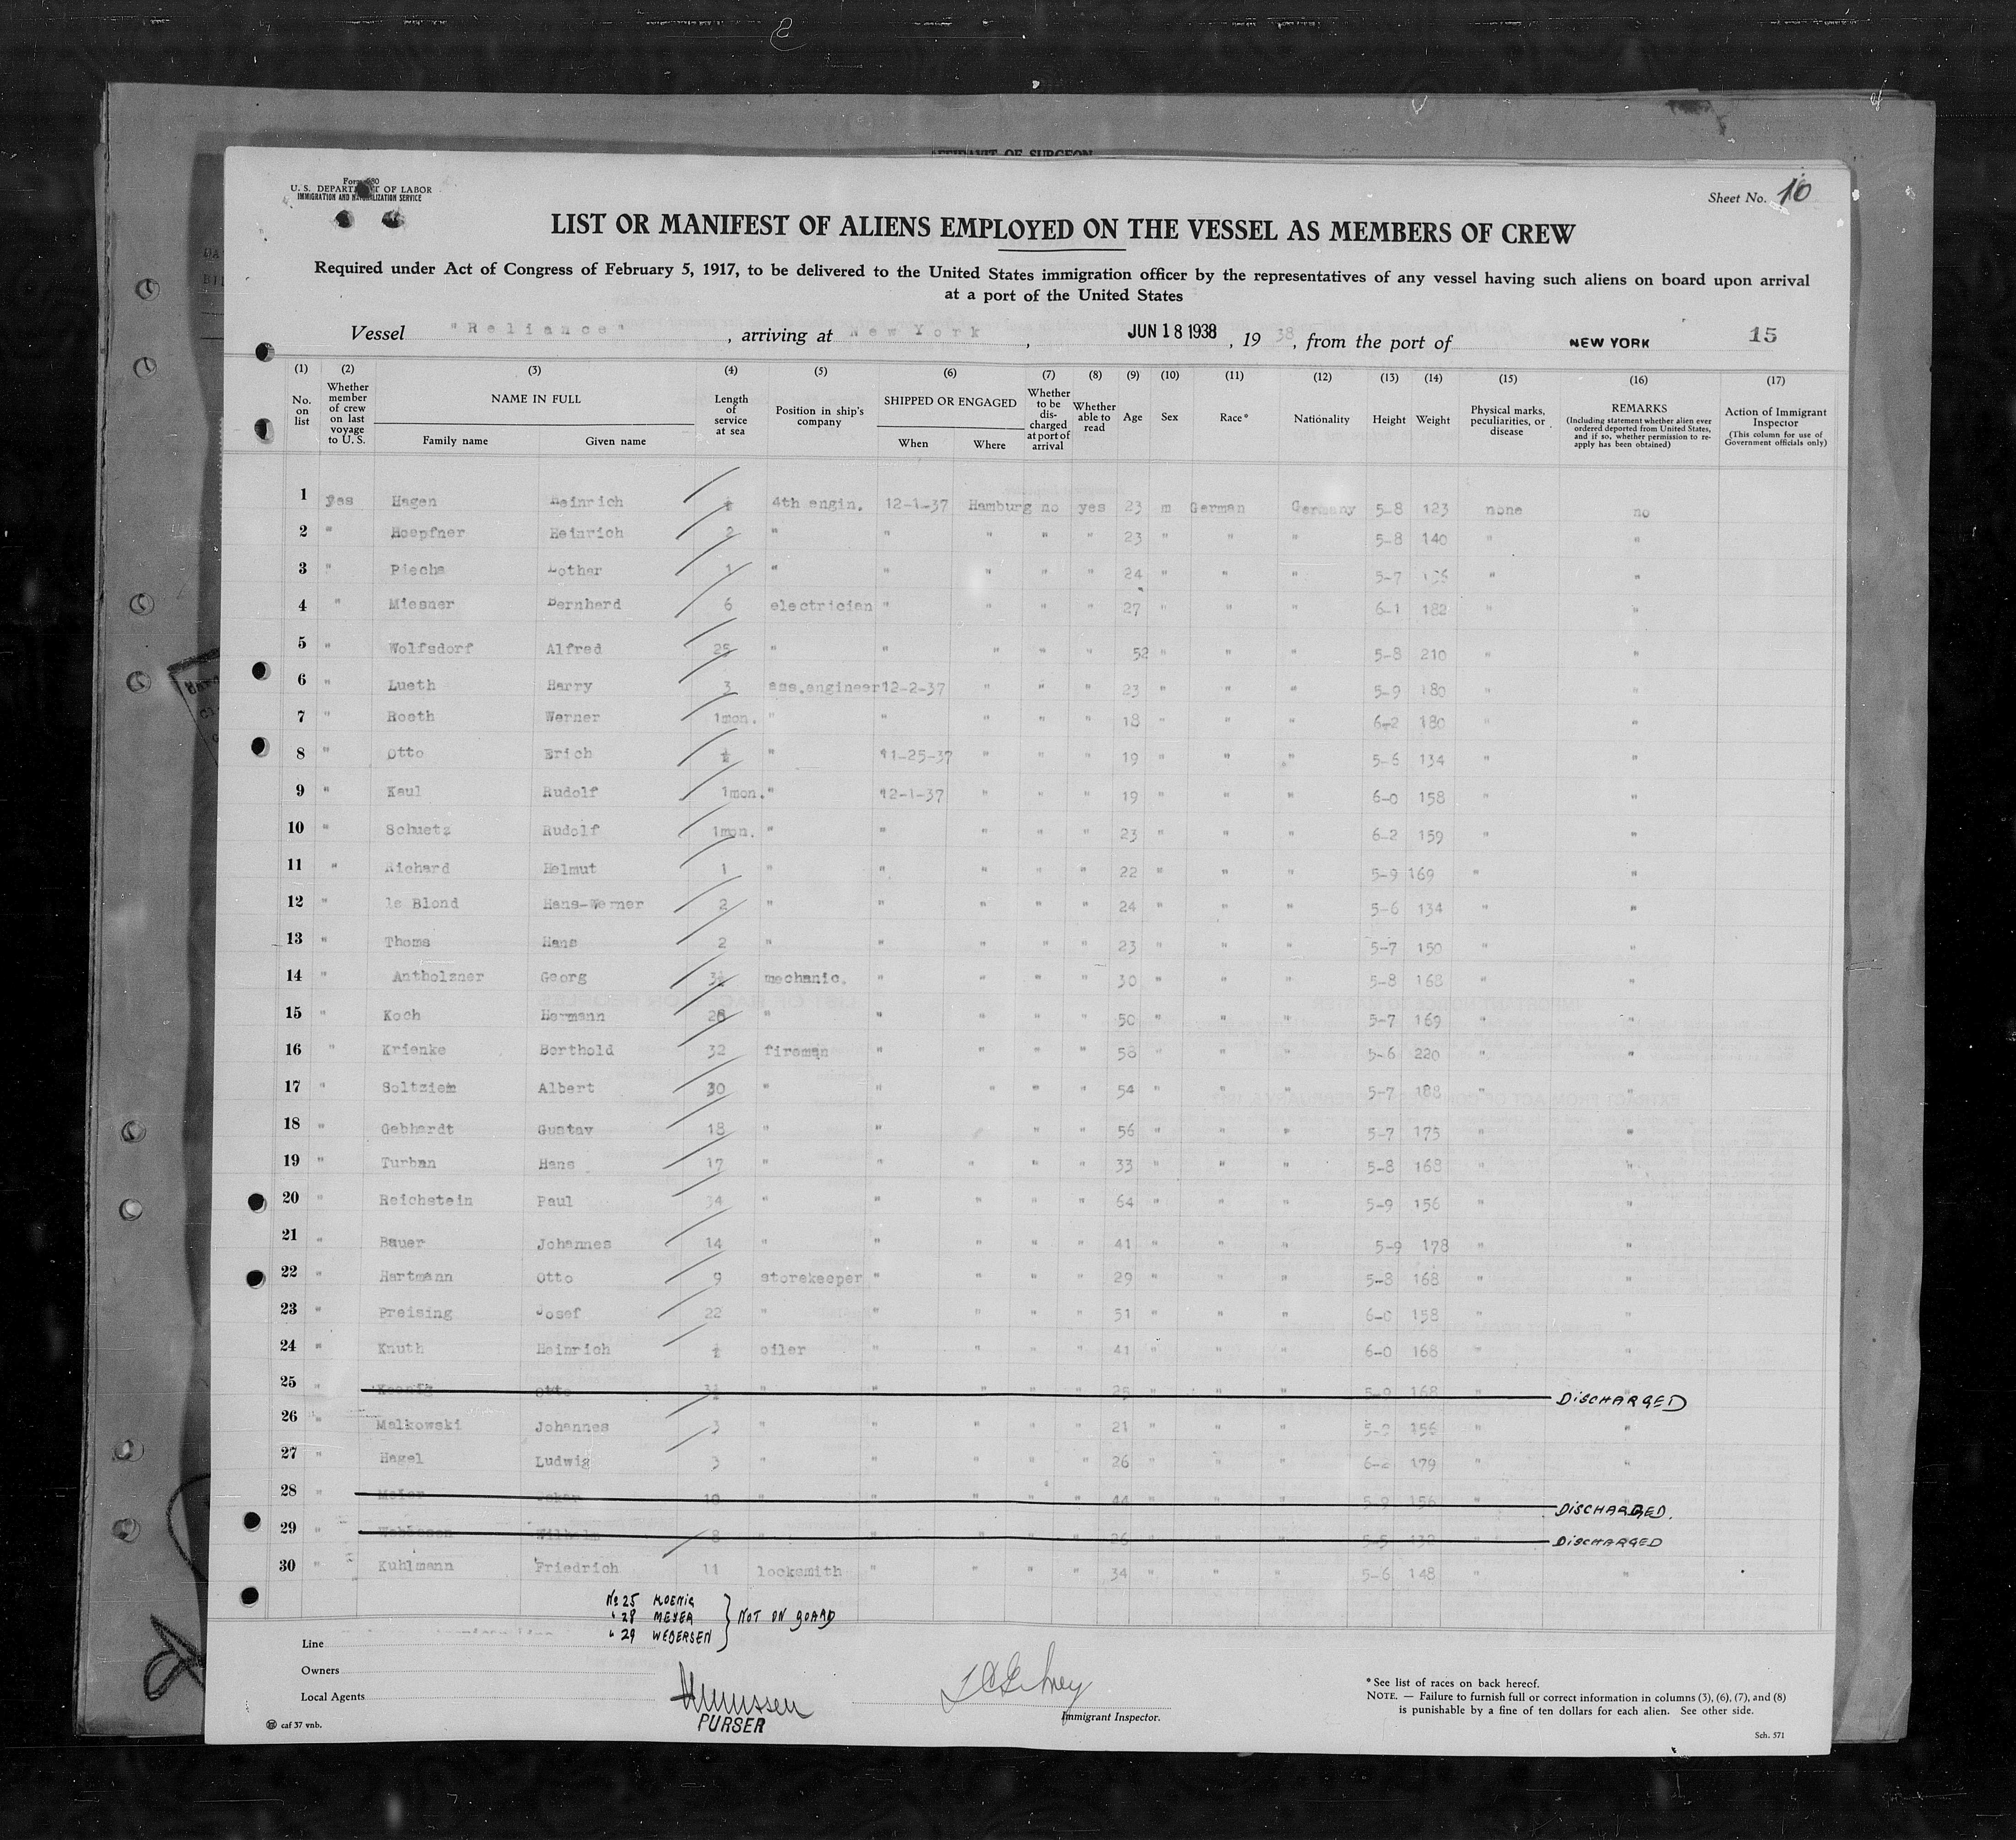 AFFIDAVIT OF SURGEON
Form 680
U. S. DEPARTMENT OF LABOR
IMMIGRATION AND NATURALIZATION SERVICE
Sheet No. 10
LIST OR MANIFEST OF ALIENS EMPLOYED ON THE VESSEL AS MEMBERS OF CREW
Required under Act of Congress of February 5, 1917, to be delivered to the United States immigration officer by the representatives of any vessel having such aliens on board upon arrival
at a port of the United States
Vessel "Reliance" , arriving at New York , JUN 18 1938 , 19 38, from the port of NEW YORK 15
(1) (2) (3) (4) (5) (6) (7) (8) (9) (10) (11) (12) (13) (14) (15) (16) (17)
No. on list
Whether member of crew on last voyage to U. S.
NAME IN FULL
Family name Given name
Length of service at sea
Position in ship's company
SHIPPED OR ENGAGED
When Where
Whether to be discharged at port of arrival
Whether able to read
Age Sex Race* Nationality Height Weight
Physical marks, peculiarities, or disease
REMARKS
(Including statement whether alien ever ordered deported from United States, and if so, whether permission to re-apply has been obtained)
Action of Immigrant Inspector
(This column for use of Government officials only)
1 yes Hagen Heinrich ½ 4th engin. 12-1-37 Hamburg no yes 23 m German Germany 5-8 123 none no
2 " Hoepfner Heinrich 2 " " " " " 23 " " " 5-8 140 " "
3 " Piecha Lothar 1 " " " " " 24 " " " 5-7 " "
4 " Miesner Bernhard 6 electrician " " " " 27 " " " 6-1 182 " "
5 " Wolfsdorf Alfred 25 " " " " " 52 " " " 5-8 210 " "
6 " Lueth Harry 3 ass.engineer 12-2-37 " " " 23 " " " 5-9 180 " "
7 " Roeth Werner 1mon. " " " " " 18 " " " 6-2 180 " "
8 " Otto Erich ½ " 11-25-37 " " " 19 " " " 5-6 134 " "
9 " Kaul Rudolf 1mon. " 12-1-37 " " " 19 " " " 6-0 158 " "
10 " Schuetz Rudolf 1mon. " " " " " 23 " " " 6-2 159 " "
11 " Richard Helmut 1 " " " " " 22 " " " 5-9 169 " "
12 " le Blond Hans-Werner 2 " " " " " 24 " " " 5-6 134 " "
13 " Thoms Hans 2 " " " " " 23 " " " 5-7 150 " "
14 " Antholzner Georg 3½ mechanic. " " " " 30 " " " 5-8 168 " "
15 " Koch Hermann 28 " " " " " 50 " " " 5-7 169 " "
16 " Krienke Berthold 32 fireman " " " " 58 " " " 5-6 220 " "
17 " Soltziem Albert 30 " " " " " 54 " " " 5-7 188 " "
18 " Gebhardt Gustav 18 " " " " 56 " " " 5-7 175 " "
19 " Turban Hans 17 " " " " " 33 " " " 5-8 168 " "
20 " Reichstein Paul 34 " " " " " 64 " " " 5-9 156 " "
21 " Bauer Johannes 14 " " " " " 41 " " " 5-9 178 " "
22 " Hartmann Otto 9 storekeeper " " " " 29 " " " 5-8 168 " "
23 " Preising Josef 22 " " " " " 51 " " " 6-0 158 " "
24 " Knuth Heinrich ½ oiler " " " " 41 " " " 6-0 168 " "
25 " Koenig Otto 3½ " " " " " 25 " " " 5-9 168 " DISCHARGED
26 " Malkowski Johannes 3 " " " " " 21 " " " 156 " "
27 " Hagel Ludwig 3 " " " " " 26 " " " 179 " "
28 " Meier Oskar 10 " " " " " 44 " " " 5-9 156 " DISCHARGED.
29 " Wilhelm 8 " " " " " 26 " " " 5-5 132 " DISCHARGED
30 " Kuhlmann Friedrich 11 locksmith " " " " 34 " " " 5-6 148 " "
No 25 KOENIG
" 28 MEYER } NOT ON BOARD
" 29 WEDERSEN
Line
Owners
Local Agents
PURSER
Immigrant Inspector.
* See list of races on back hereof.
NOTE. — Failure to furnish full or correct information in columns (3), (6), (7), and (8)
is punishable by a fine of ten dollars for each alien. See other side.
caf 37 vnb.
Sch. 571